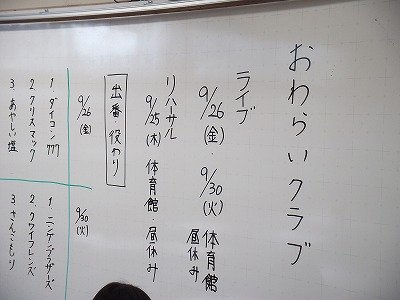 おわらいクラブ
ライブ
9/26(金)・9/30(火) 体育館 昼休み
リハーサル
9/25(木) 体育館・昼休み
出番・役わり
9/26(金)
1. ダイコン777
2. クリスマック
3. あやしい塩
9/30(火)
1. ニンゲンブラザーズ
2. クワイフレンズ
3. さんこもり